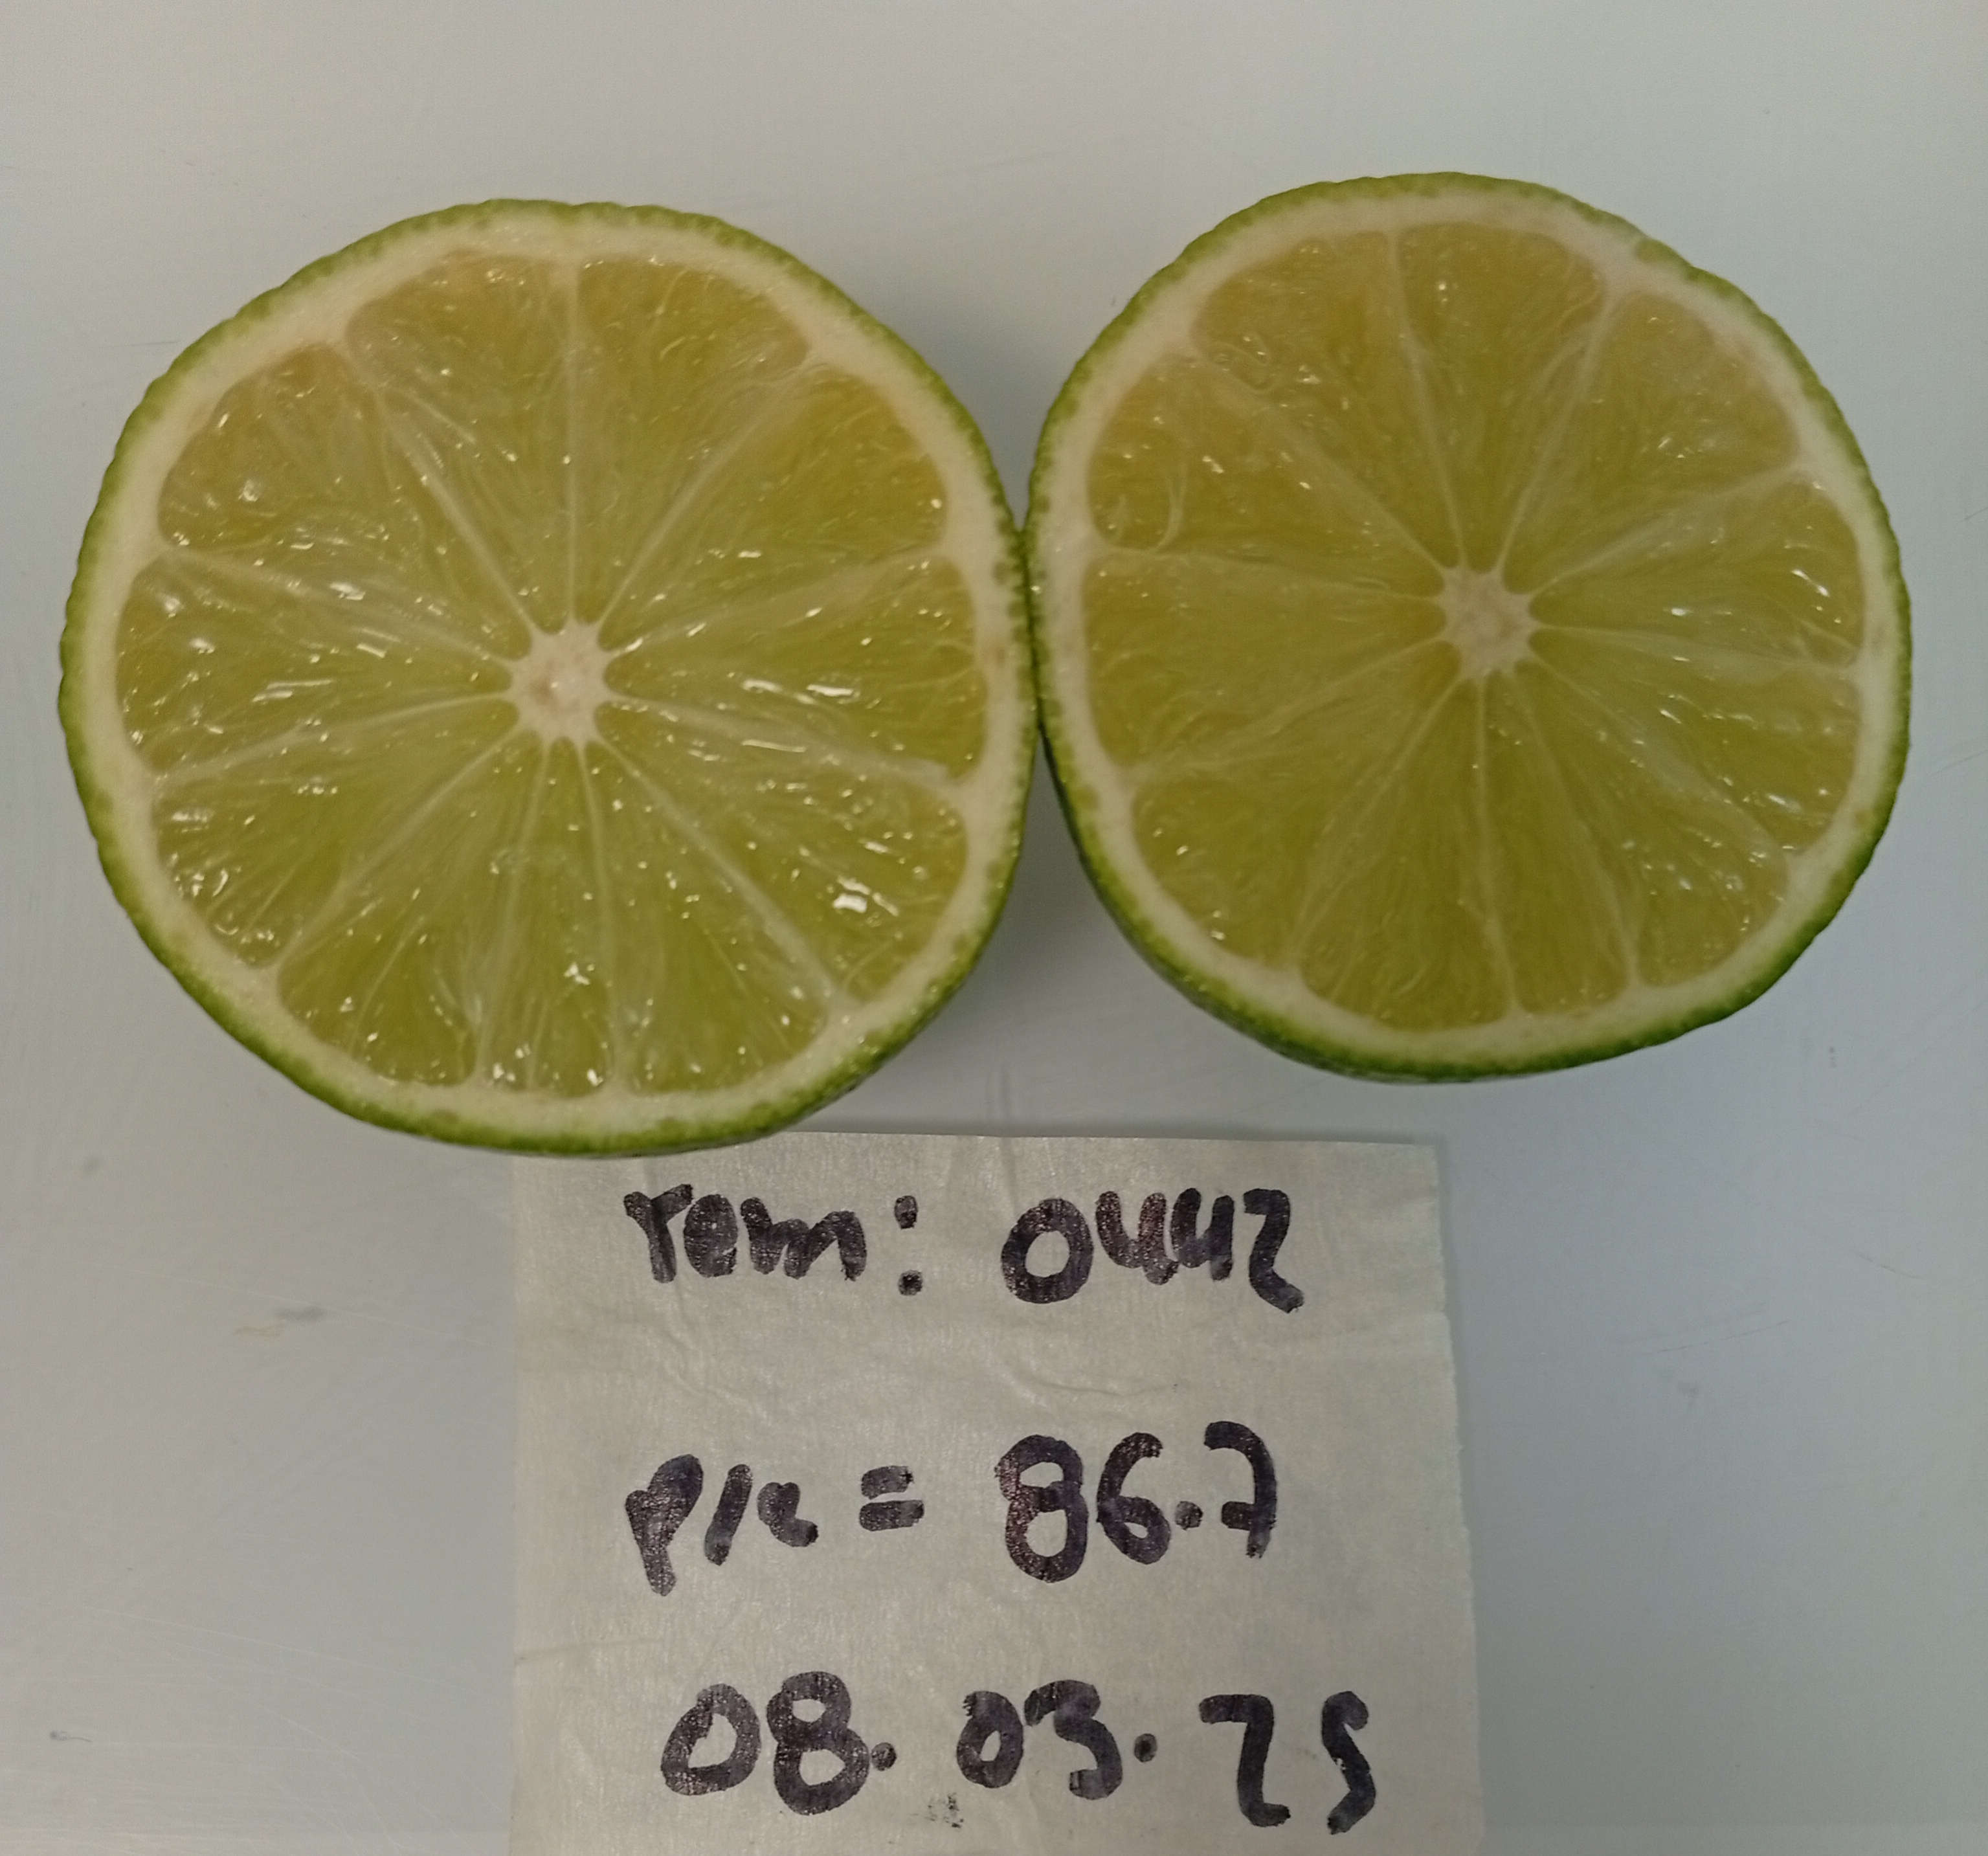 rem: 0442
P/r = 86.7
08.03.25